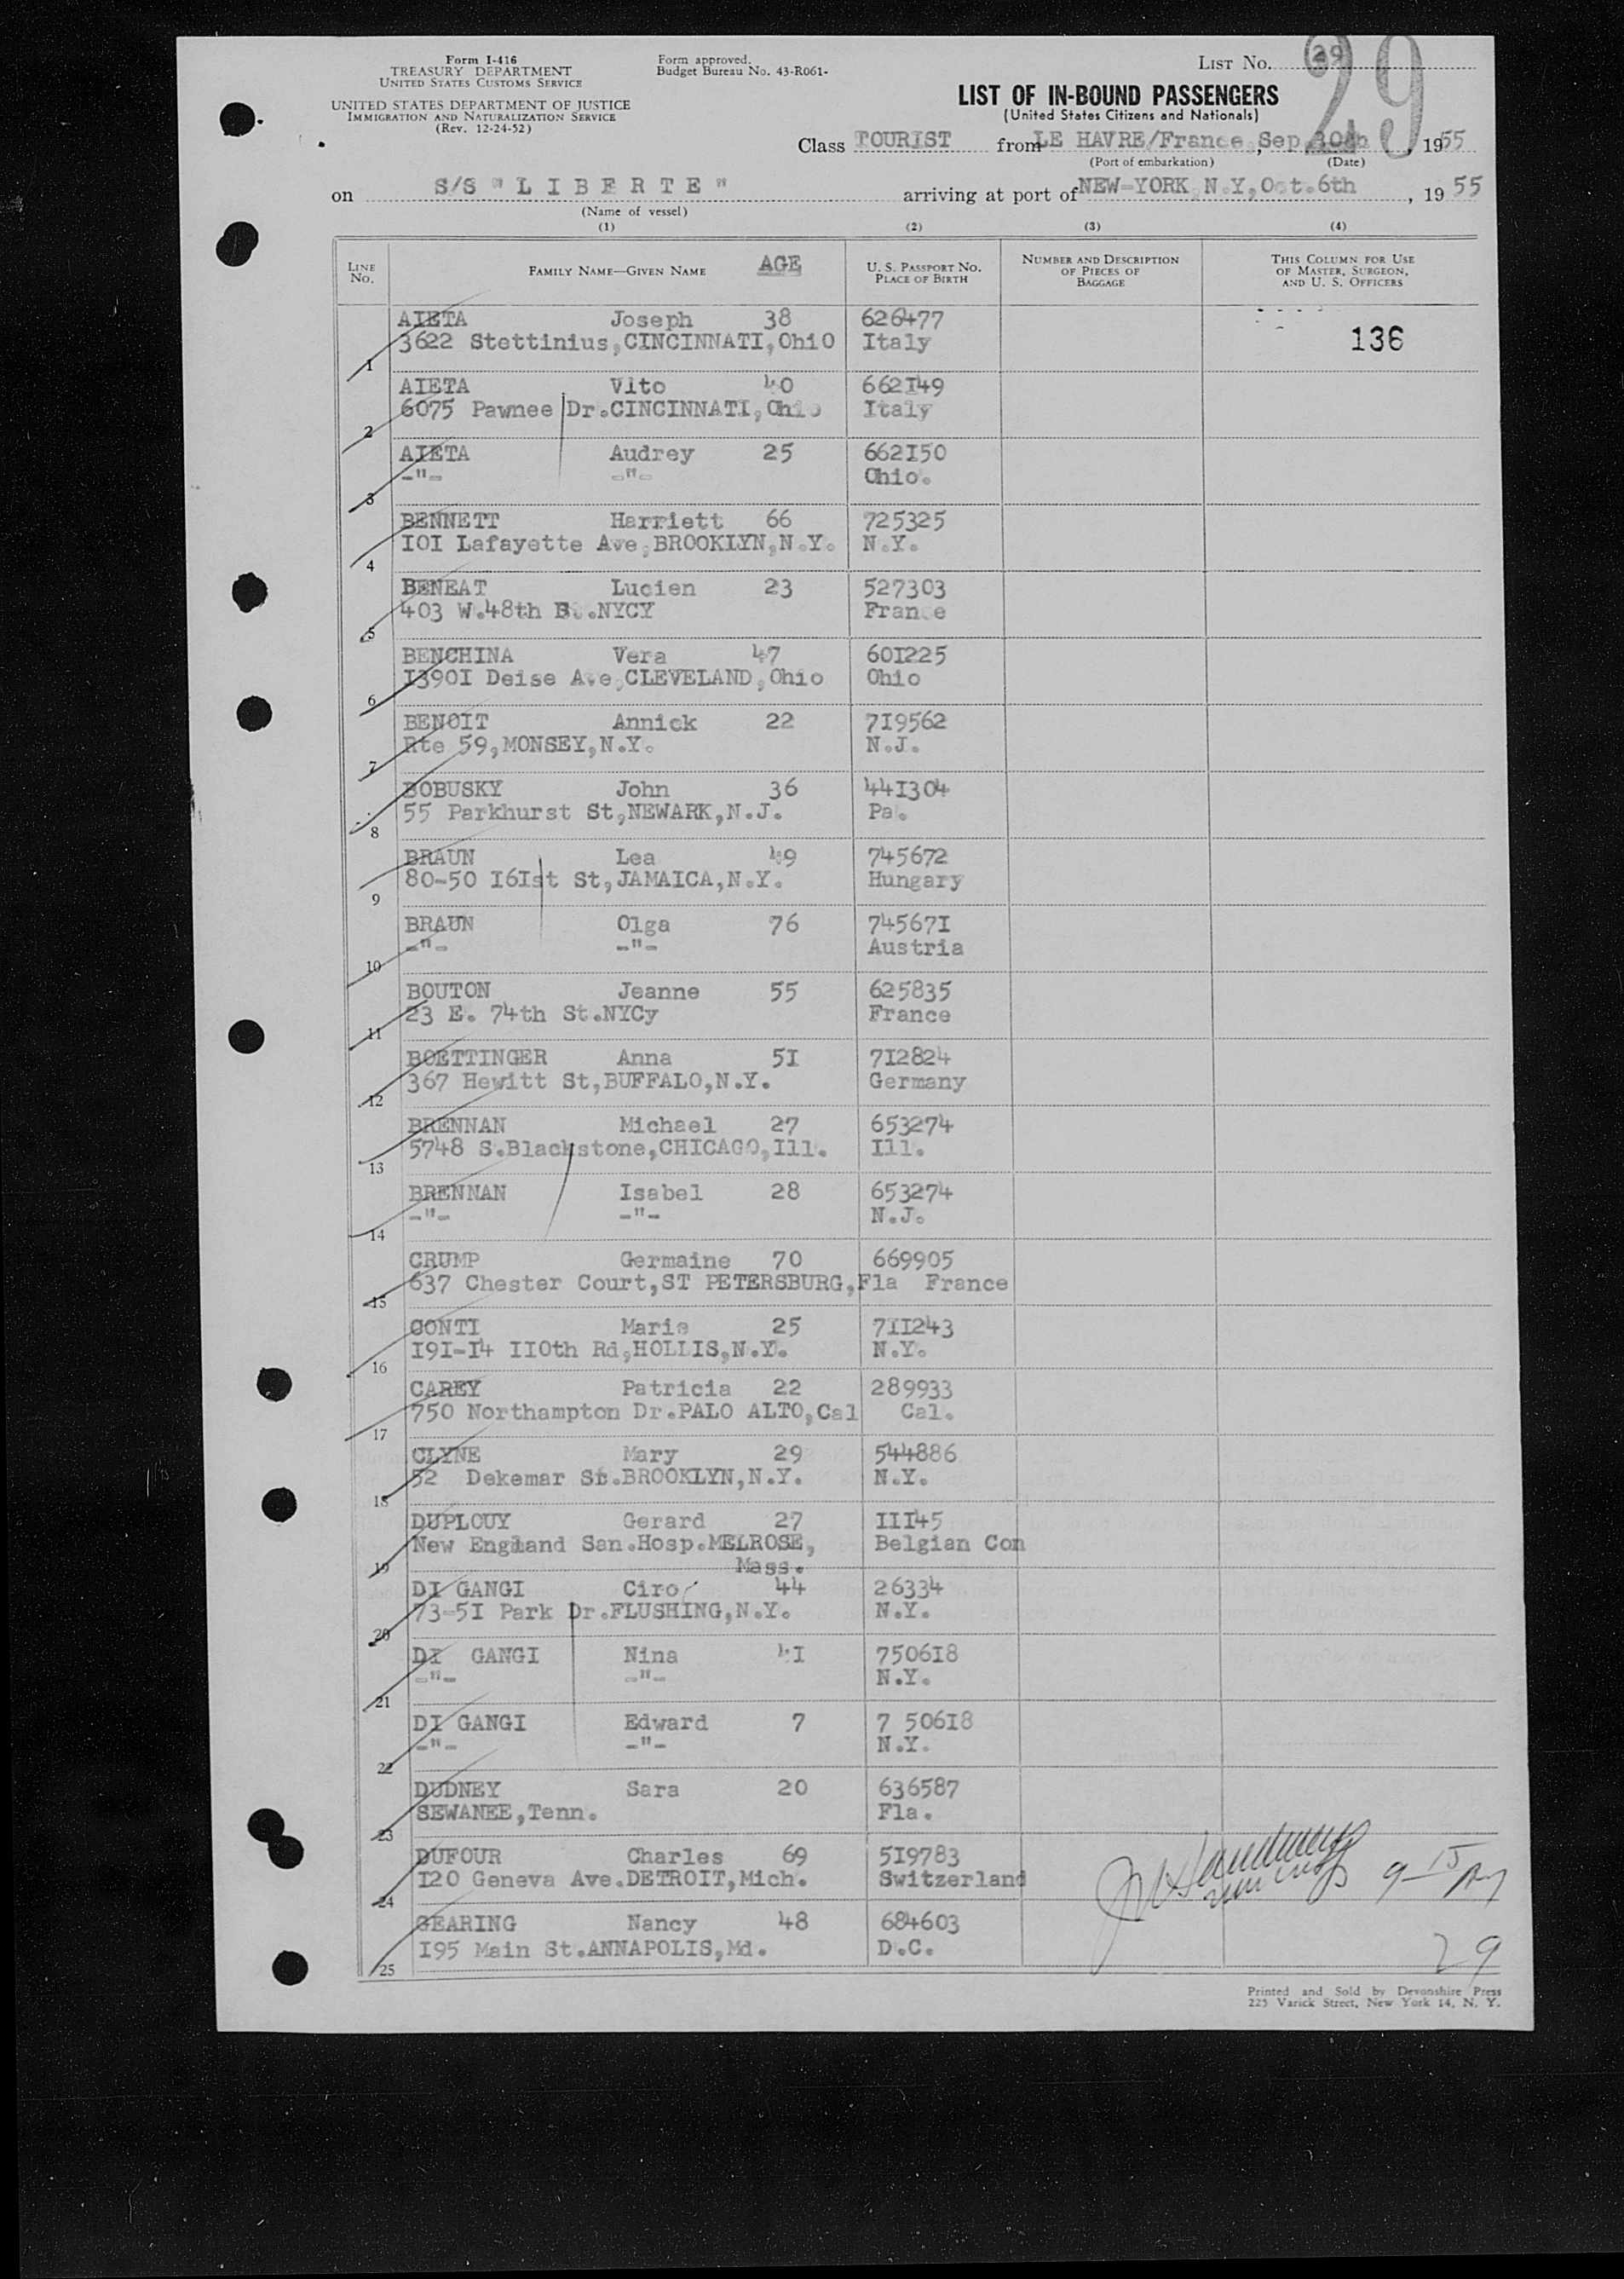 Form I-416
TREASURY DEPARTMENT
UNITED STATES CUSTOMS SERVICE
UNITED STATES DEPARTMENT OF JUSTICE
IMMIGRATION AND NATURALIZATION SERVICE
(Rev. 12-24-52)
Form approved.
Budget Bureau No. 43-R061-
LIST NO. 29
29
LIST OF IN-BOUND PASSENGERS
(United States Citizens and Nationals)
Class TOURIST from LE HAVRE/France, Sep 30th, 1955
(Port of embarkation) (Date)
on S/S "LIBERTE" arriving at port of NEW-YORK N.Y, Oct.6th, 1955
(Name of vessel)
(1) (2) (3) (4)
LINE NO. FAMILY NAME—GIVEN NAME AGE U. S. PASSPORT NO. PLACE OF BIRTH NUMBER AND DESCRIPTION OF PIECES OF BAGGAGE THIS COLUMN FOR USE OF MASTER, SURGEON, AND U. S. OFFICERS
AIETA Joseph 38 626477
3622 Stettinius,CINCINNATI,OhiO Italy 136
1
AIETA Vito 40 662I49
6075 Pawnee Dr.CINCINNATI,Ohio Italy
2
AIETA Audrey 25 662I50
-"- -"- Ohio.
3
BENNETT Harriett 66 725325
IOI Lafayette Ave,BROOKLYN,N.Y. N.Y.
4
BENEAT Lucien 23 527303
403 W.48th .NYCY France
5
BENCHINA Vera 47 60I225
I390I Deise Ave,CLEVELAND,Ohio Ohio
6
BENOIT Annick 22 7I9562
Rte 59,MONSEY,N.Y. N.J.
7
BOBUSKY John 36 44I304
55 Parkhurst St,NEWARK,N.J. Pa.
8
BRAUN Lea 49 745672
80-50 I6Ist St,JAMAICA,N.Y. Hungary
9
BRAUN Olga 76 74567I
-"- -"- Austria
10
BOUTON Jeanne 55 625835
23 E. 74th St.NYCy France
11
BOETTINGER Anna 5I 7I2824
367 Hewitt St,BUFFALO,N.Y. Germany
12
BRENNAN Michael 27 653274
5748 S.Blackstone,CHICAGO,Ill. Ill.
13
BRENNAN Isabel 28 653274
-"- -"- N.J.
14
CRUMP Germaine 70 669905
637 Chester Court,ST PETERSBURG,Fla France
15
CONTI Marie 25 7II243
I9I-I4 II0th Rd,HOLLIS,N.Y. N.Y.
16
CAREY Patricia 22 289933
750 Northampton Dr.PALO ALTO,Cal Cal.
17
CLYNE Mary 29 544886
52 Dekemar St.BROOKLYN,N.Y. N.Y.
18
DUPLOUY Gerard 27 III45
New England San.Hosp.MELROSE, Belgian Con
Mass.
19
DI GANGI Ciro 44 26334
73-5I Park Dr.FLUSHING,N.Y. N.Y.
20
DI GANGI Nina 4I 7506I8
-"- -"- N.Y.
21
DI GANGI Edward 7 7 506I8
-"- -"- N.Y.
22
DUDNEY Sara 20 636587
SEWANEE,Tenn. Fla.
23
DUFOUR Charles 69 5I9783
I20 Geneva Ave.DETROIT,Mich. Switzerland
24
GEARING Nancy 48 684603
I95 Main St.ANNAPOLIS,Md. D.C.
25
29
Printed and Sold by Devonshire Press
225 Varick Street, New York 14, N. Y.